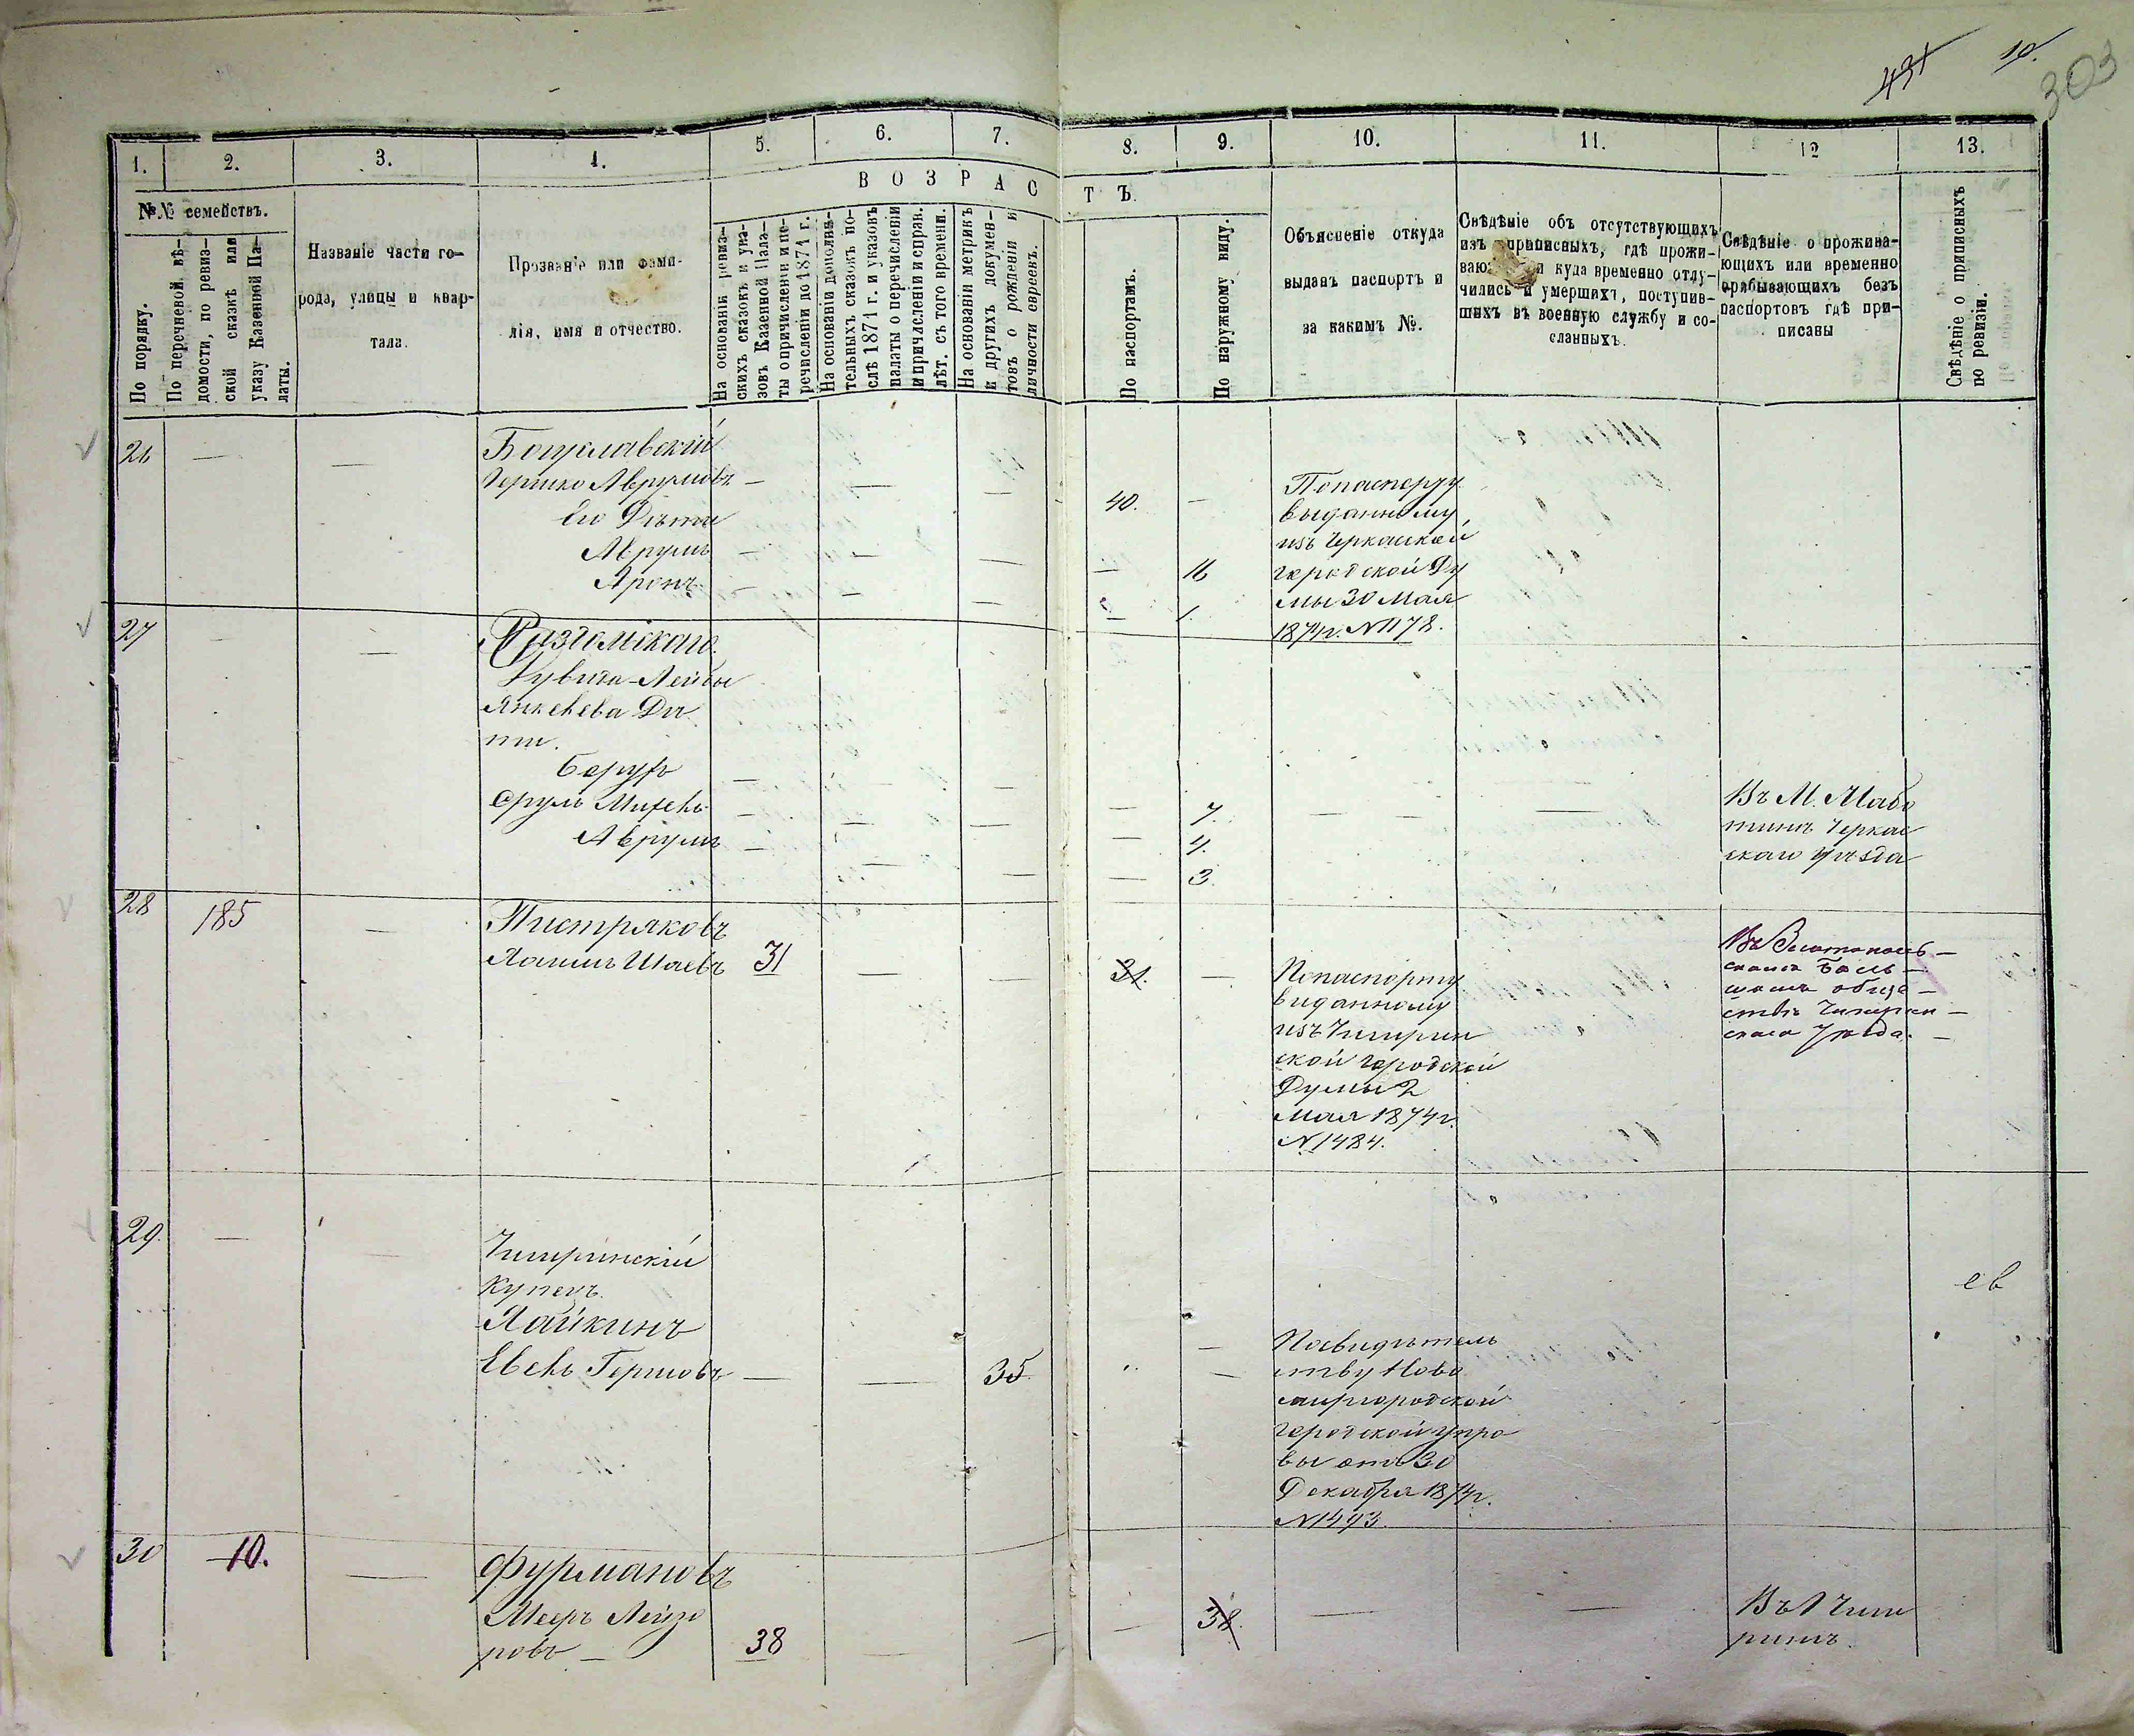 431 10. 303
1. 2. 3. 4. 5. 6. 7. 8. 9. 10. 11. 12 13.
ВОЗРАСТЪ.
№№ семействъ.
По порядку.
По перечневой вѣ-
домости, по ревиз-
ской сказкѣ или
указу Казенной Па-
латы.
Названіе части го-
рода, улицы и квар-
тала.
Прозваніе или фами-
лія, имя и отчество.
На основаніи ревиз-
скихъ сказокъ и ука-
зовъ Казенной Пала-
ты о причисленіи и пе-
речисленіи до 1871 г.
На основаніи дополни-
тельныхъ сказокъ по-
слѣ 1871 г. и указовъ
палаты о перечисленіи
и причисленіи и справ.
лѣт. съ того времени.
На основаніи метрикъ
и другихъ докумен-
товъ о рожденіи и
личности евреевъ.
По паспортамъ.
По наружному виду.
Объясненіе откуда
выданъ паспортъ и
за какимъ №.
Свѣдѣніе объ отсутствующихъ
изъ приписныхъ, гдѣ прожи-
ваютъ и куда временно отлу-
чились и умершихъ, поступив-
шихъ въ военную службу и со-
сланныхъ.
Свѣдѣніе о прожива-
ющихъ или временно
прибывающихъ безъ
паспортовъ гдѣ при-
писаны
Свѣдѣніе о приписныхъ
по ревизіи.
26 — — Богуславскій
Гершко Аврумовъ — — — 40. —
Его Дѣти
Аврумъ — — — — 16
Аронъ — — — — 1.
Попаспорту
выданному
изъ Черкаской
городской Ду
мы 30 Мая
1874г. N 1178.
27 — —
Рувина-Лейбы
Янкелева Дѣ
ти.
Борухъ — — — — 7.
Срулъ Михель — — — — 4.
Аврумъ — — — — 3.
Въ М. Мабо
тинѣ Черкас
скаго Уѣзда
28 185 — Пистряковъ
Хаимъ Шаевъ 31 — — 31. —
Попаспорту
выданному
изъ Чигирин
ской городской
Думы 2
мая 1874г.
N 1484.
Въ Златополь-
скомъ
обще-
ствѣ Чигирин-
скаго Уѣзда. —
29. — — Чигиринскій
Купецъ
Хайкинъ
Евель Гершовъ — — 35. —
Посвидѣтель
ству Ново
миргородской
городской упра
вы отъ 30
Декабря 1874г.
N 1493.
ев
30 10. — Фурмановъ
Мееръ Лейзо
ровъ — 38 — — — 38. — —
Въ Г Чиги
ринѣ.